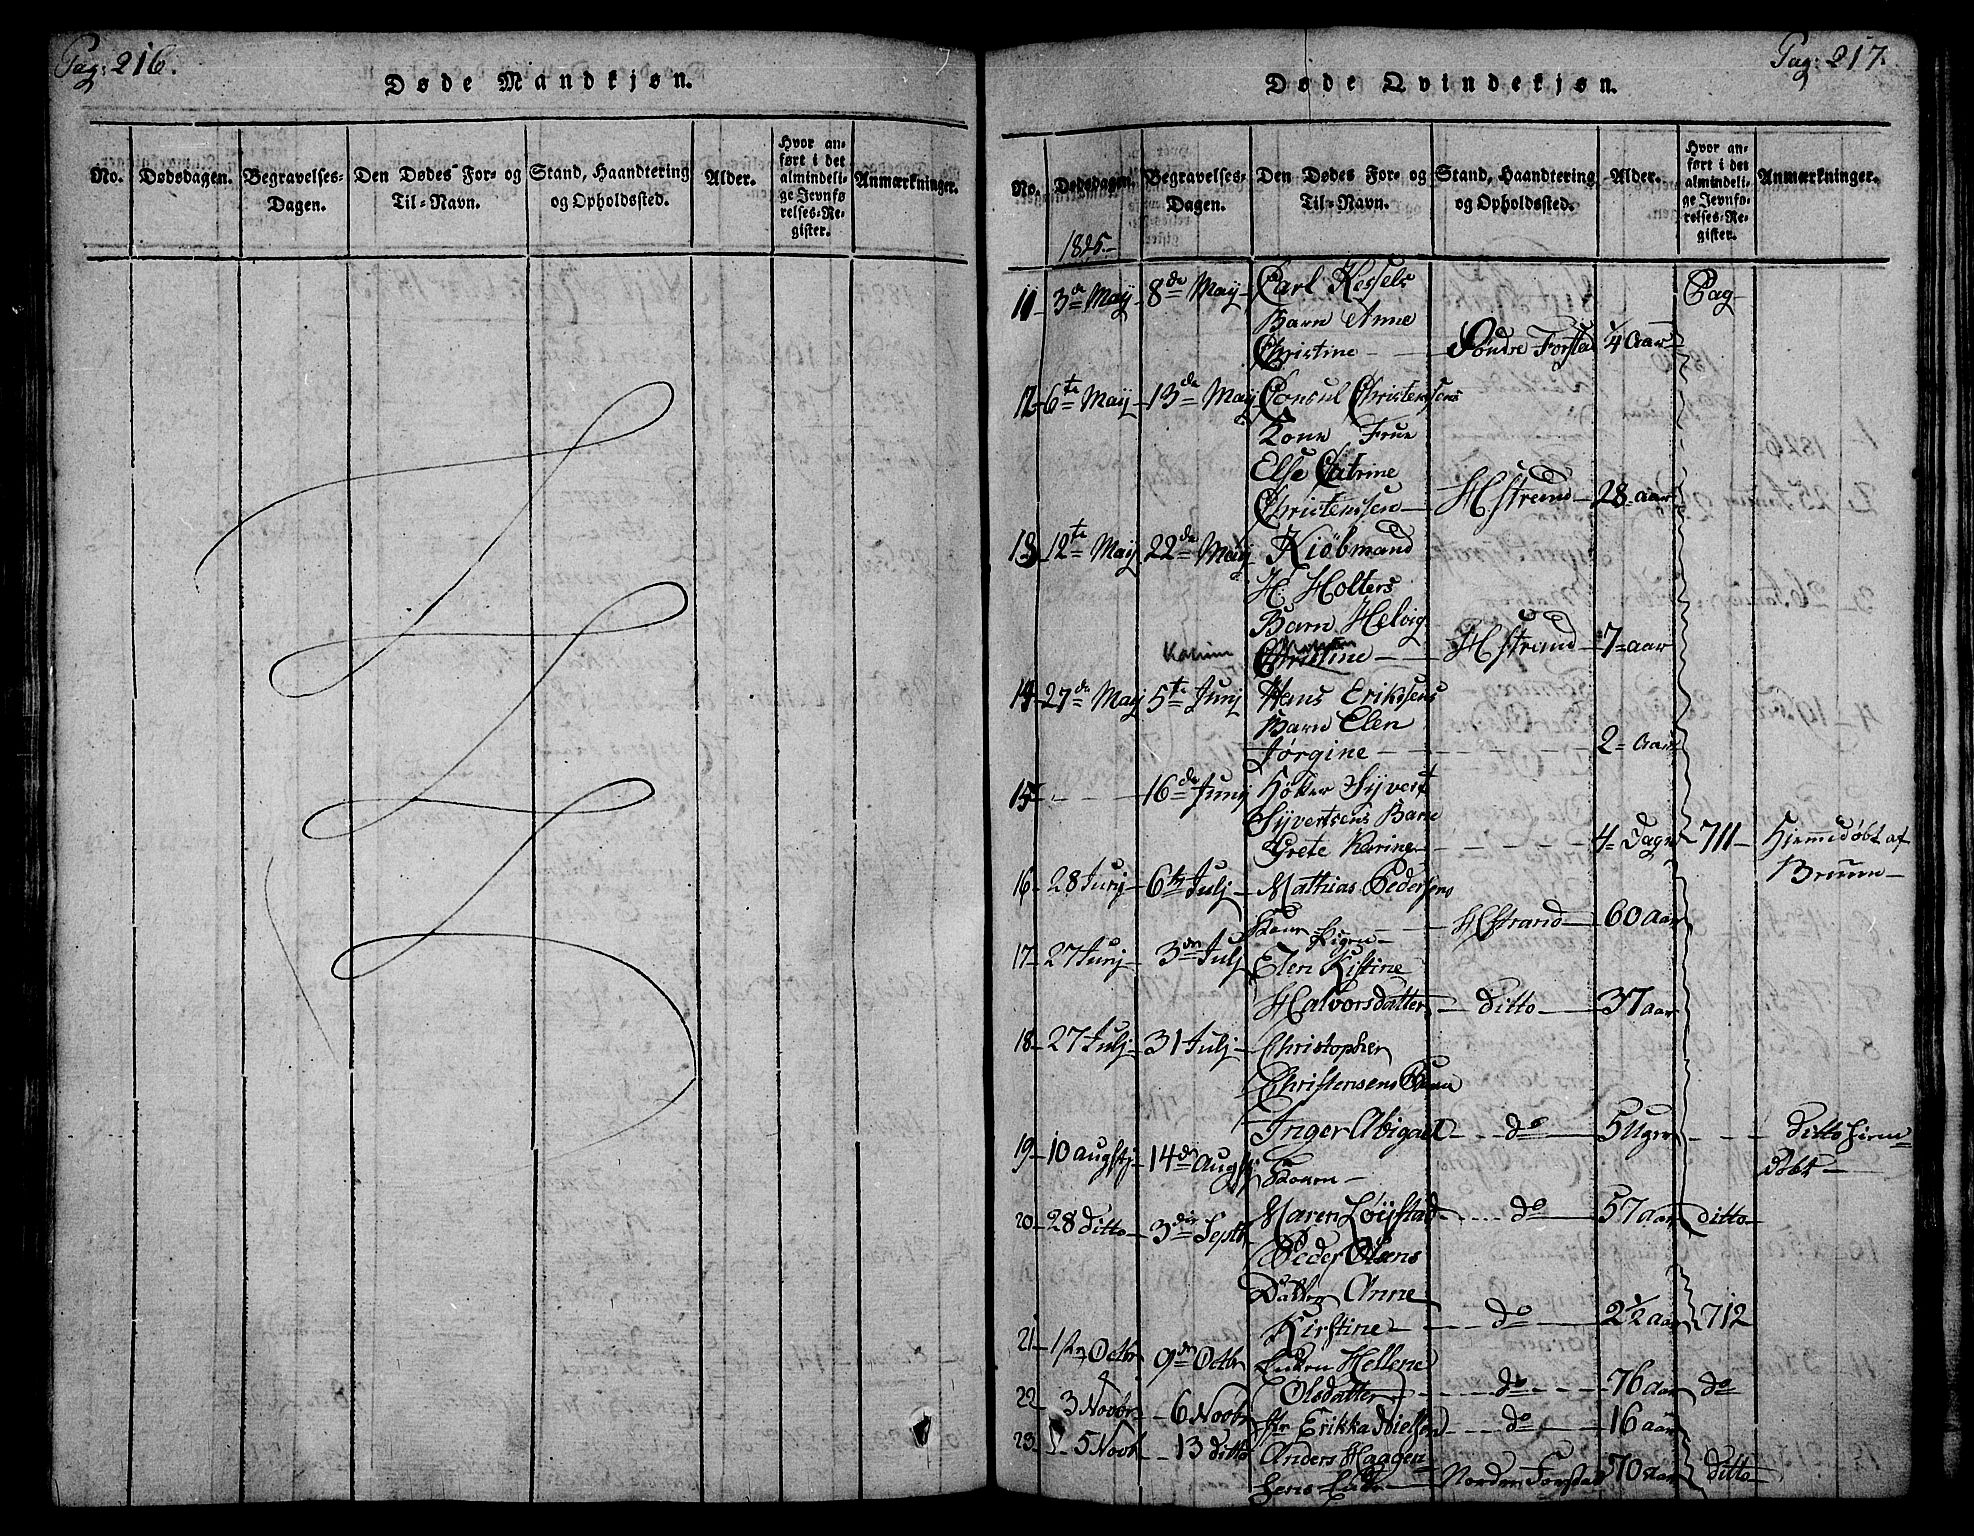 Pag: 216.
Døde Mandkjøn.
No.
Dødsdagen.
Begravelses-
Dagen.
Den Dødes For- og
Til-Navn.
Stand, Haandtering
og Opholdssted.
Alder.
Hvor an-
ført i det
almindeli-
ge Jevnfø-
relses-Re-
gister.
Anmærkninger.
Pag: 217.
Døde Qvindekjøn.
No.
Dødsdagen.
Begravelses-
Dagen.
Den Dødes For- og
Til-Navn.
Stand, Haandtering
og Opholdssted.
Alder.
Hvor an-
ført i det
almindeli-
ge Jevnfø-
relses-Re-
gister.
Anmærkninger.
1825.
11 3de Maij 8de Maij Carl Kessels Pag
Barn Anne
Christine Søndre Forstad 1/4 Aar
12 6te Maij 13de Maij Consul Christenssens
Kone Frue
Else Catrine
Christenssen HStrand 28 aar
13 12te Maij 22de Maij Kiöbmand
H: Holters
Barn Helvig
Christine HStrand 7 aar
14 27de Maij 5te Junj Hans Eriksens
Barn Elen
Jørgine 2 Aar
15 16de Junij Høker Syvert
Syvertsens Barn
Grete Karine 4 Dage 711 Hjemmedøbt af
Bruun
16 28 Junj 6te Julj Mathias Pedersens
HStrand 60 Aar
17 27 Junj 3die Julj Elen Kistine
Halvorsdatter ditto 37 aar
18 27 Julj 31 Julj Christopher
Christensens Barn
Inger Abigael do 5 Uger ditto Hiem
døbt
19 10 Augstj 14de Augstj
Maren Löystad do 57 aar ditto
20 28 ditto 3die Septbr
Peder Olsens
Datter Anne
Kirstine do 2 1/2 aar 712
21 1ste Octbr 9de Octbr Enken Hellene
Olsdatter do 76 aar do
22 3 Novbr 6 Novbr Erikka Nielsen do 16 aar
23 5 Novb 13 ditto Anders Haagen
Norder Forstad 70 aar ditto